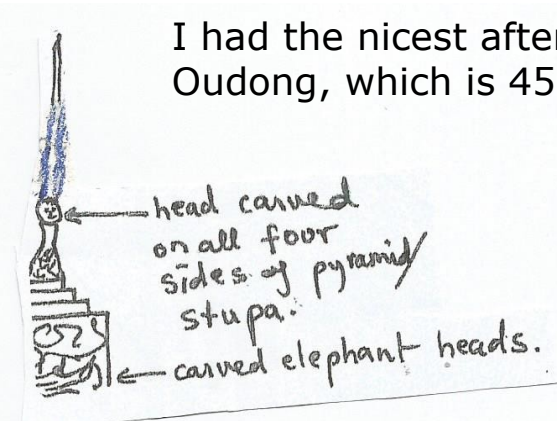 I had the nicest after
Oudong, which is 45
head carved
on all four
sides of pyramid/
stupa.
carved elephant heads.